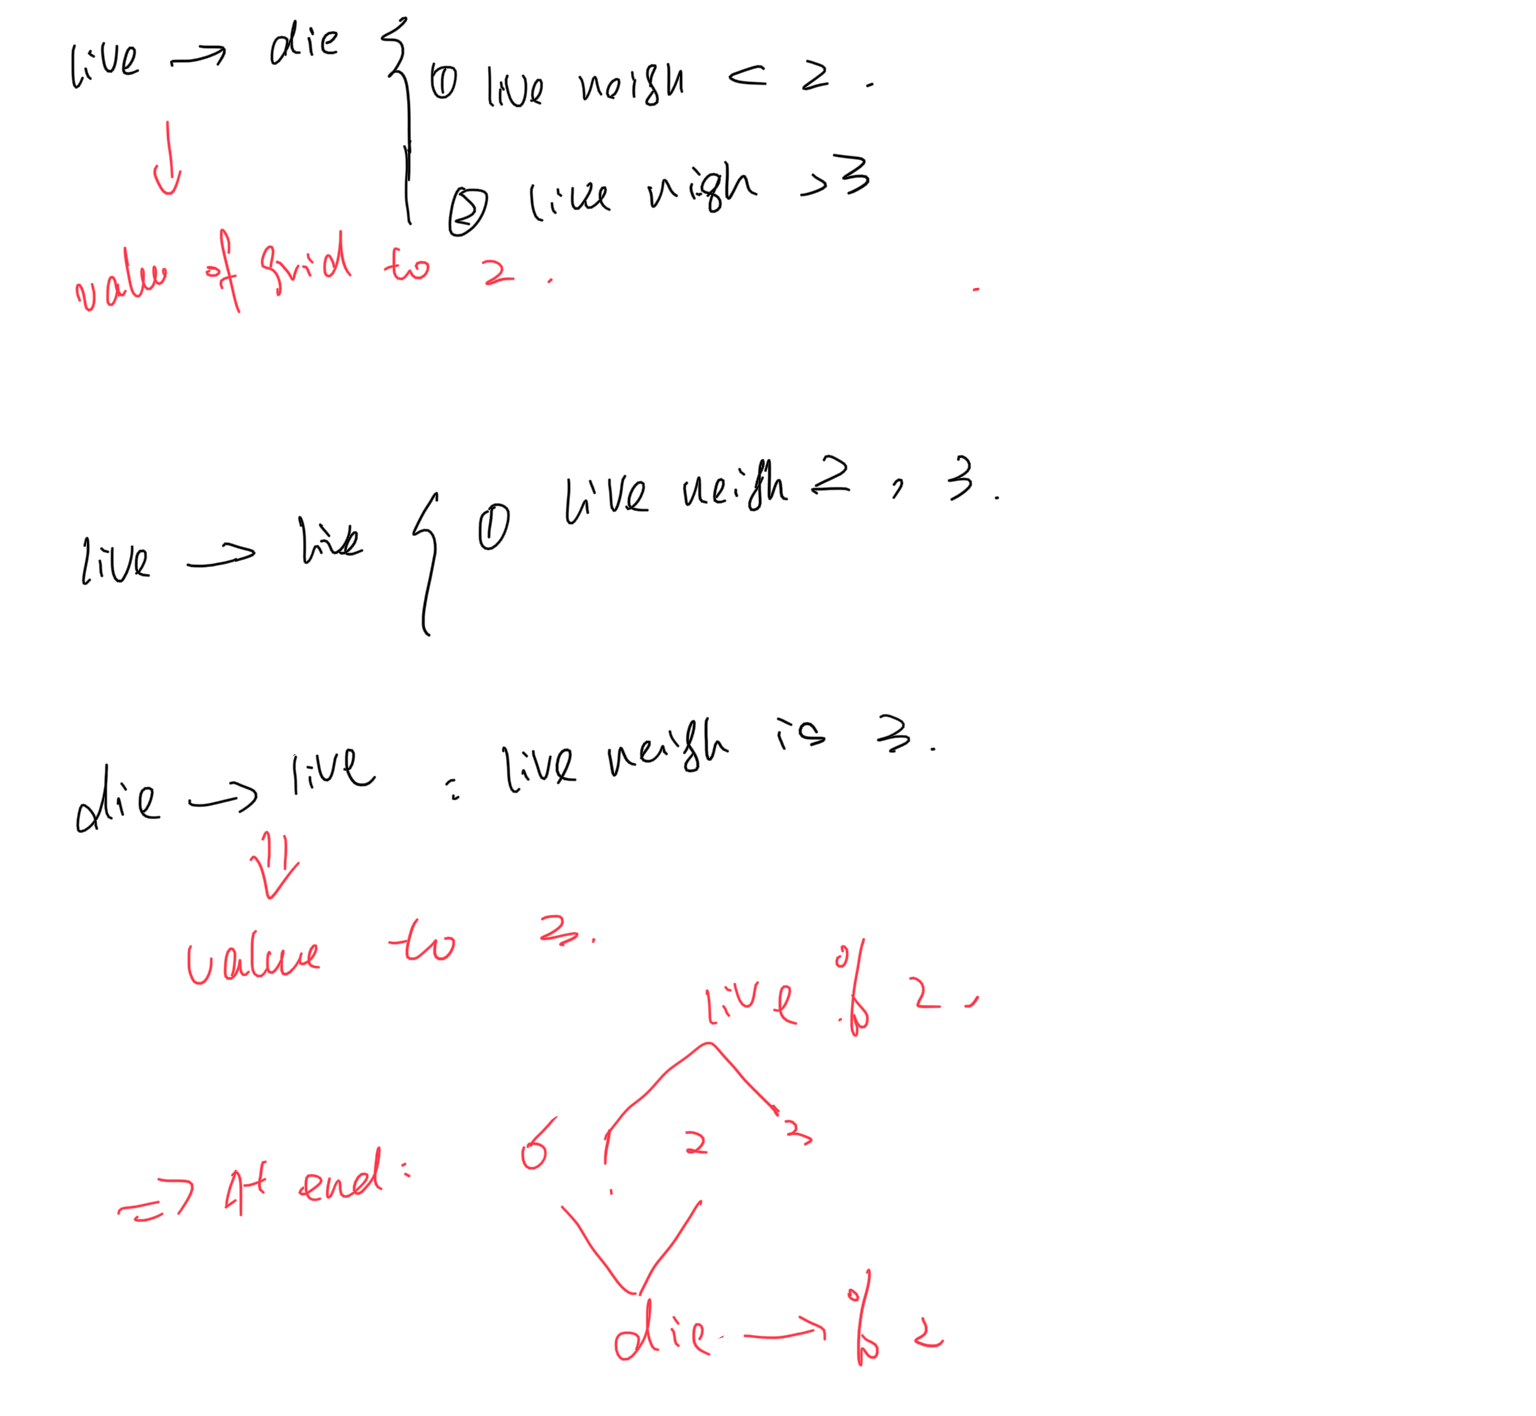 live → die { ① live neigh < 2 .
② live nigh > 3
value of grid to 2 .
live → live { ① live neigh 2 , 3 .
die → live : live neigh is 3 .
value to 3 .
live % 2 ,
⇒ At end : 0 1 2 3
die → % 2